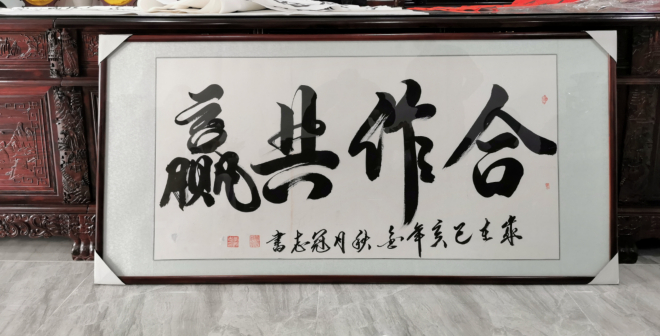 合作共赢
歲在己亥年金秋月冠志書